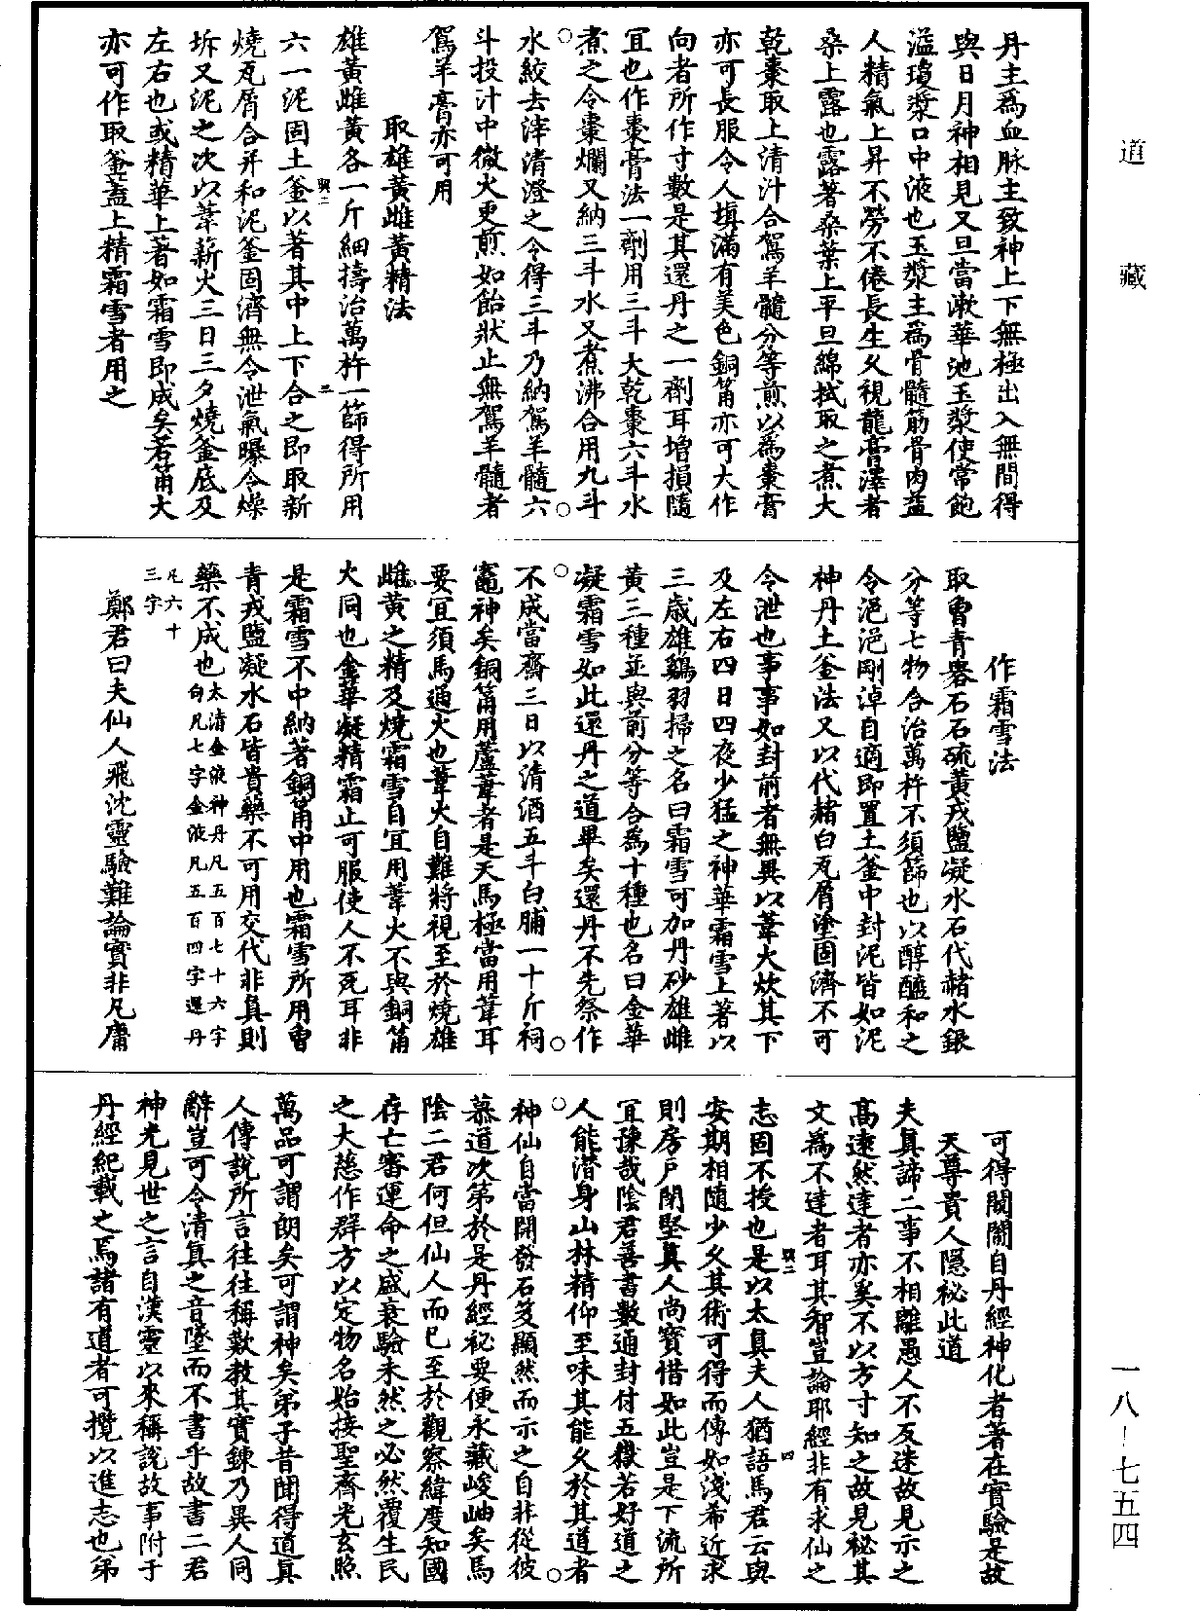 道藏
丹主為血脉主致神上下無極出入無間得
與日月神相見又旦當漱華池玉漿使常飽
溢瓊漿口中液也玉漿主為骨髓筋骨肉益
人精氣上昇不勞不倦長生久視龍膏澤者
桑上露也露著桑葉上平旦綿拭取之煮大
乾棗取上清汁合駕羊髓分等煎以為棗膏
亦可長服令人填滿有美色銅筩亦可大作
向者所作寸數是其還丹之一劑耳增損隨
宜也作棗膏法一劑用三斗大乾棗六斗水
煮之令棗爛又納三斗水又煮沸合用九斗
水絞去滓清澄之令得三斗乃納駕羊髓六
斗投汁中微火更煎如飴狀止無駕羊髓者
駕羊膏亦可用
取雄黃雌黃精法
雄黃雌黃各一斤細擣治萬杵一篩得所用
六一泥固土釜以著其中上下合之即取新
燒瓦屑合并和泥釜固濟無令泄氣曝令燥
坼又泥之次以葦薪火三日三夕燒釜底及
左右也或精華上著如霜雪即成矣若筩大
亦可作取釜蓋上精霜雪者用之
作霜雪法
取曾青礜石石硫黃戎鹽凝水石代赭水銀
分等七物合治萬杵不須篩也以醇醯和之
令浥浥剛淖自適即置土釜中封泥皆如泥
神丹土釜法又以代赭白瓦屑塗固濟不可
令泄也事事如封前者無異以葦火炊其下
及左右四日四夜少猛之神華霜雪上著以
三歲雄鷄羽掃之名曰霜雪可加丹砂雄雌
黃三種並與前分等合為十種也名曰金華
凝霜雪如此還丹之道畢矣還丹不先祭作
不成當齋三日以清酒五斗白脯一十斤祠
竈神矣銅筩用蘆葦者是天馬極當用葦耳
要宜須馬通火也葦火自難將視至於燒雄
雌黃之精及燒霜雪自宜用葦火不與銅筩
火同也金華凝精霜止可服使人不死耳非
是霜雪不中納著銅筩中用也霜雪所用曾
青戎鹽凝水石皆貴藥不可用交代非真則
藥不成也太清金液神丹凡五百七十六字
白凡七字金液凡五百四字還丹
凡六十
三字
鄭君曰夫仙人飛沈靈驗難論實非凡庸
可得關聞自丹經神化者著在實驗是故
天尊貴人隱秘此道
夫真諦二事不相離愚人不反迷故見示之
高遠然達者亦奚不以方寸知之故見祕其
文為不達者耳其智豈論耶經非有求仙之
志固不授也是以太真夫人猶語馬君云與
安期相隨少久其術可得而傳如淺希近求
則房戶閉堅真人尚寶惜如此豈是下流所
宜豫哉陰君善書數通封付五嶽若好道之
人能潛身山林精仰至味其能久於其道者
神仙自當開發石笈顯然而示之自非從彼
慕道次第於是丹經祕要便永藏峻岫矣馬
陰二君何但仙人而已至於觀察緯度知國
存亡審運命之盛衰驗未然之必然覆生民
之大慈作群方以定物名始接聖齊光玄照
萬品可謂朗矣可謂神矣弟子昔聞得道真
人傳說所言往往稱歎教其實錬乃異人同
辭豈可令清真之音墜而不書乎故書二君
神光見世之言自漢靈以來稱說故事附于
丹經紀載之焉諸有道者可攬以進志也弟
一八—七五四